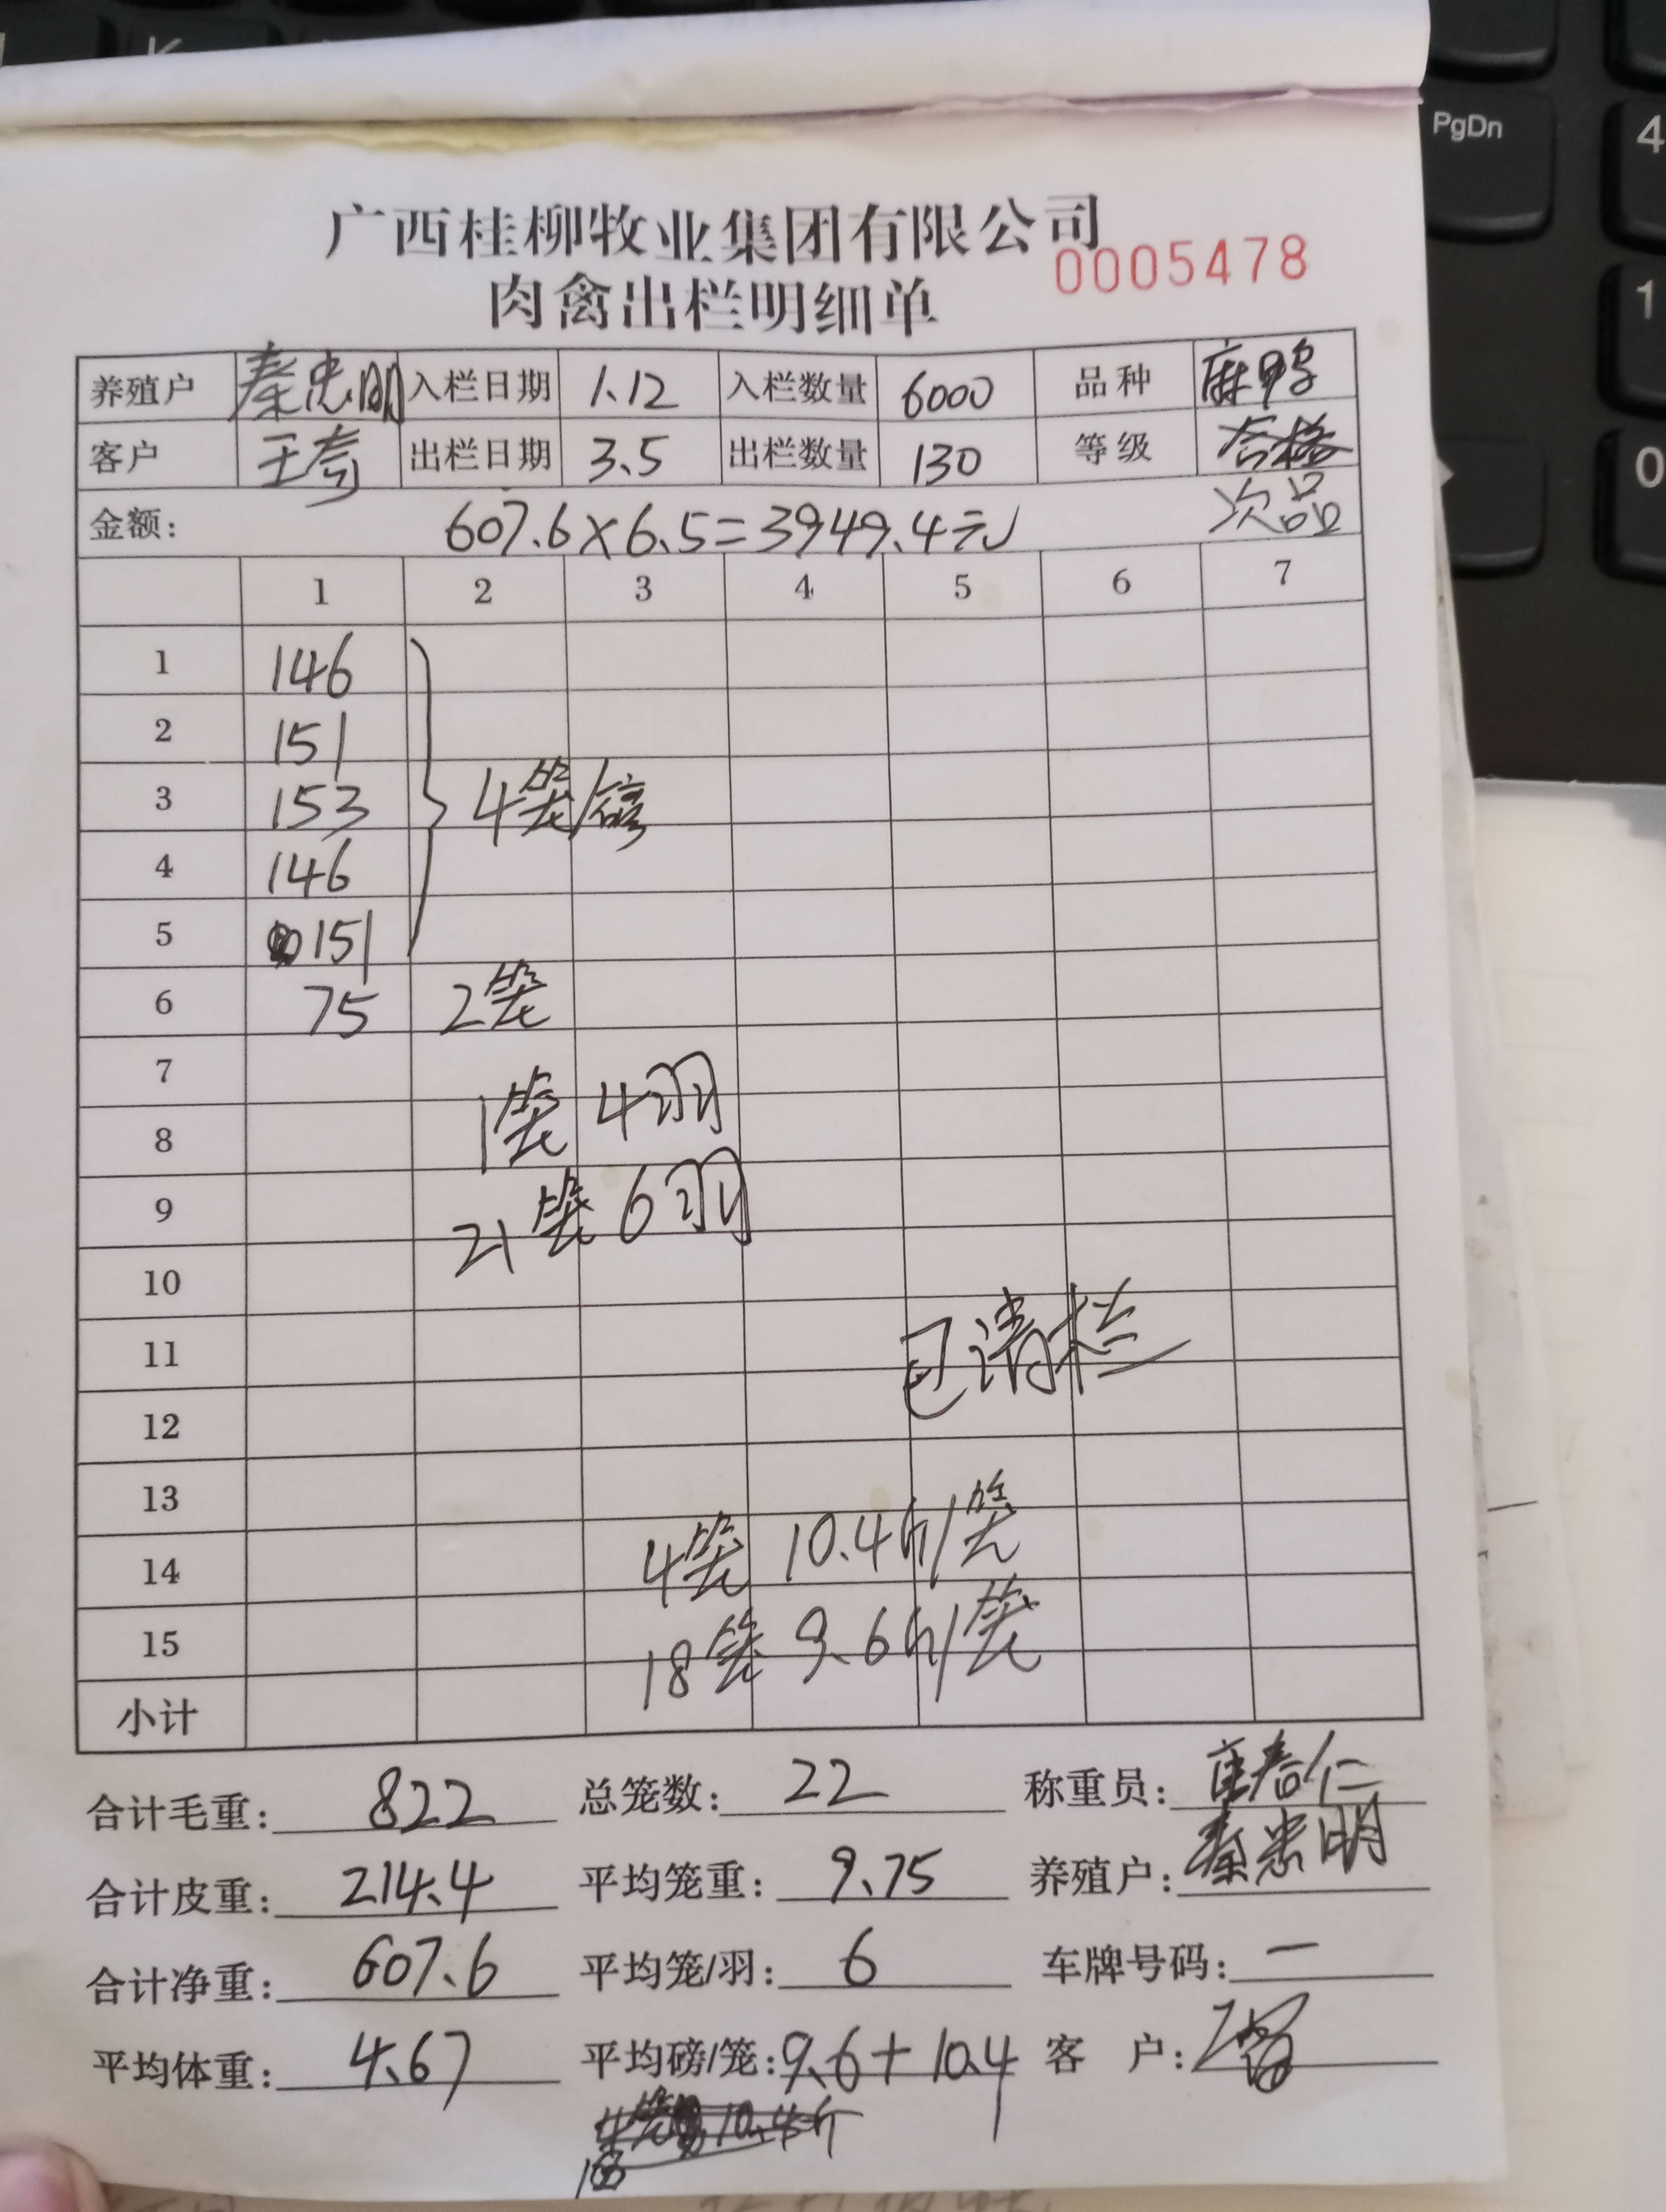 PgDn
4
1
0
广西桂柳牧业集团有限公司
0005478
肉禽出栏明细单
养殖户 秦忠明 入栏日期 1.12 入栏数量 6000 品种 麻鸭
客户 出栏日期 3.5 出栏数量 130 等级 合格
金额: 607.6×6.5=3949.4元 次品
1 2 3 4 5 6 7
1 146
2 151
3 153 4笼/磅
4 146
5 151
6 75 2笼
7
8 1笼 4羽
9 21笼 6羽
10
11 已清栏
12
13
14 4笼 10.4斤/笼
15 18笼 9.6斤/笼
小计
合计毛重: 822 总笼数: 22 称重员:
合计皮重: 214.4 平均笼重: 9.75 养殖户: 秦忠明
合计净重: 607.6 平均笼/羽: 6 车牌号码: 一
平均体重: 4.67 平均磅/笼: 9.6+10.4 客 户: